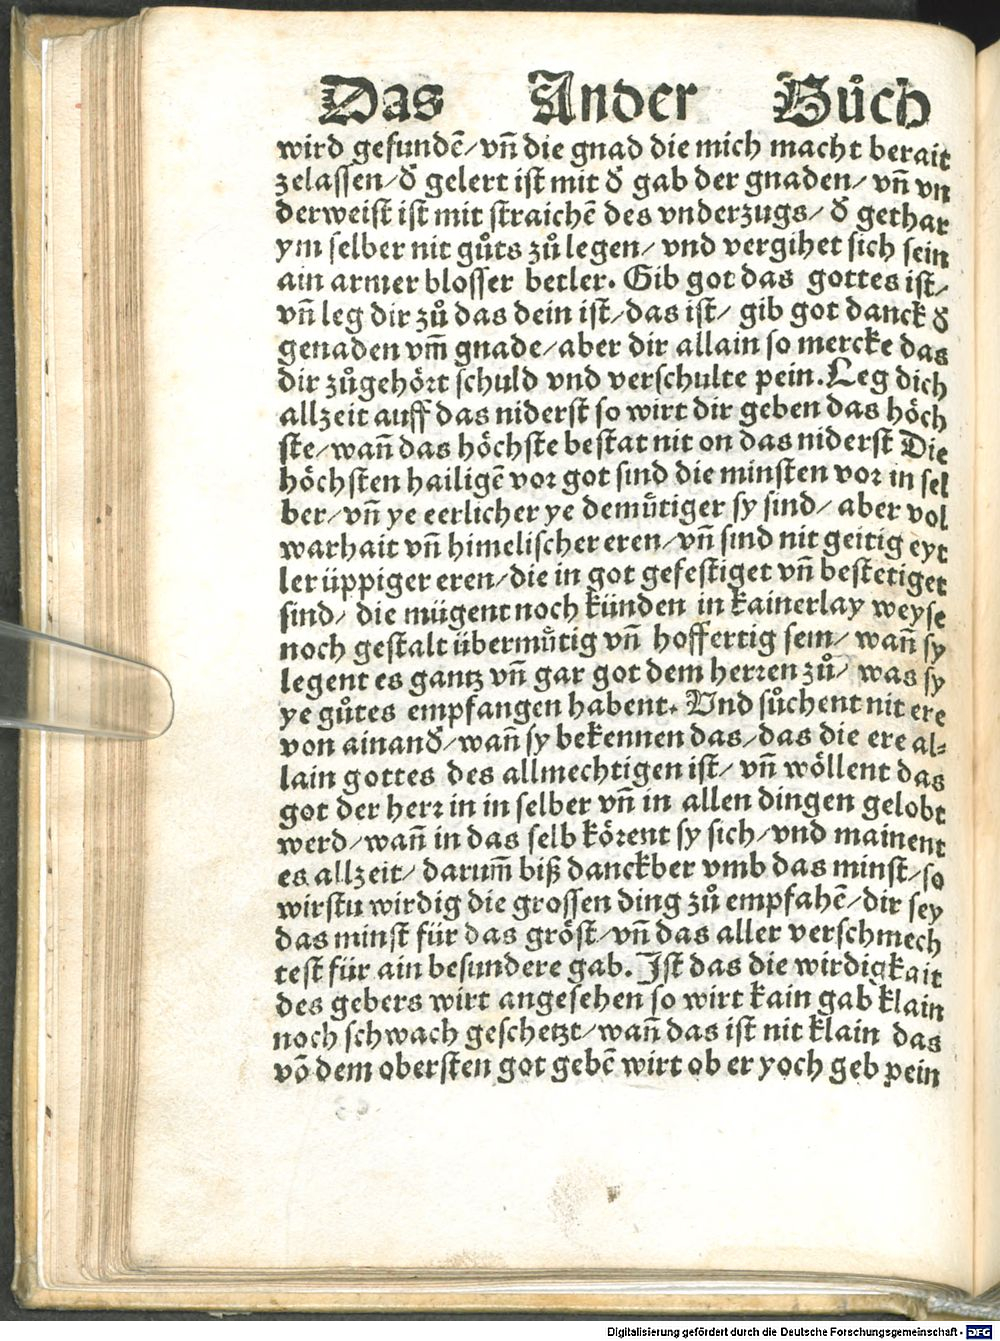 Das Ander Bůch
wird gefundē/vn̄ die gnad die mich macht berait
zelassen/ď gelert ist mit ď gab der gnaden/ vn̄ vn
derweist ist mit straichē des vnderzugs/ ď gethar
ym selber nit gůts zů legen/ vnd vergihet sich sein
ain armer blosser betler. Gib got das gottes ist/
vn̄ leg dir zů das dein ist/das ist/ gib got danck ď
genaden vm̄ gnade/aber dir allain so mercke das
dir zůgehört schuld vnd verschulte pein. Leg dich
allzeit auff das niderst so wirt dir geben das höch
ste/wan̄ das höchste bestat nit on das niderst Die
höchsten hailigē vor got sind die minsten vor in sel
ber/vn̄ ye eerlicher ye demüͤtiger sy sind/ aber vol
warhait vn̄ himelischer eren/vn̄ sind nit geitig eyt
ler üppiger eren/die in got gefestiget vn̄ bestetiget
sind/ die mügent noch künden in kainerlay weyse
noch gestalt übermüͤtig vn̄ hoffertig sein/ wan̄ sy
legent es gantz vn̄ gar got dem herren zů/ was sy
ye gůtes empfangen habent. Vnd sůchent nit ere
von ainanď/wan̄ sy bekennen das/das die ere al⸗
lain gottes des allmechtigen ist/ vn̄ wöllent das
got der herr in in selber vn̄ in allen dingen gelobt
werd/wan̄ in das selb körent sy sich/vnd mainent
es allzeit/ darum̄ biß danckber vmb das minst/so
wirstu wirdig die grossen ding zů empfahē/dir sey
das minst für das gröst/vn̄ das aller verschmech
test für ain besundere gab. Ist das die wirdigkait
des gebers wirt angesehen so wirt kain gab klain
noch schwach geschetzt/wan̄ das ist nit klain das
vō dem obersten got gebē wirt ob er yoch geb pein
Digitalisierung gefördert durch die Deutsche Forschungsgemeinschaft - DFG